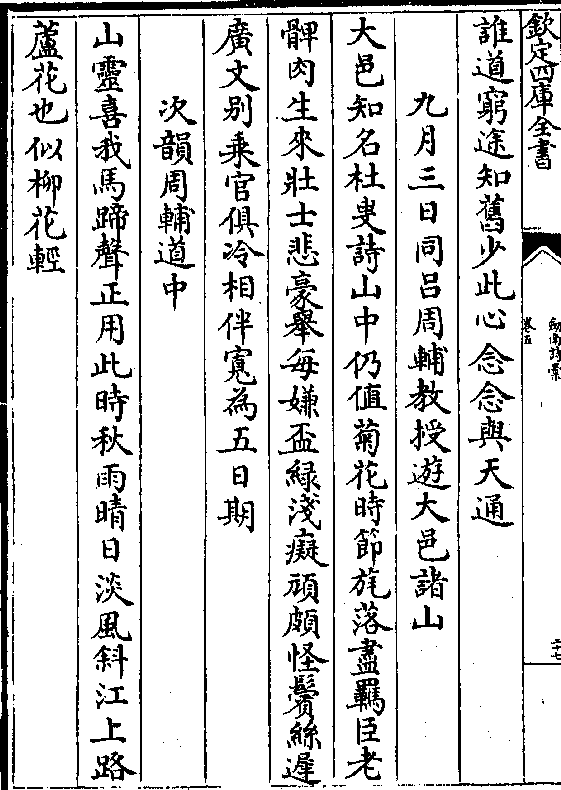 欽定四庫全書
劍南詩稾
卷五
二十七
誰道窮途知舊少此心念念與天通
九月三日同呂周輔教授遊大邑諸山
大邑知名杜叟詩山中仍值菊花時節旄落盡羈臣老
髀肉生來壯士悲豪舉每嫌盃緑淺癡頑頗怪鬢絲遲
廣文别乗官俱冷相伴寛為五日期
次韻周輔道中
山靈喜我馬蹄聲正用此時秋雨晴日淡風斜江上路
蘆花也似柳花輕